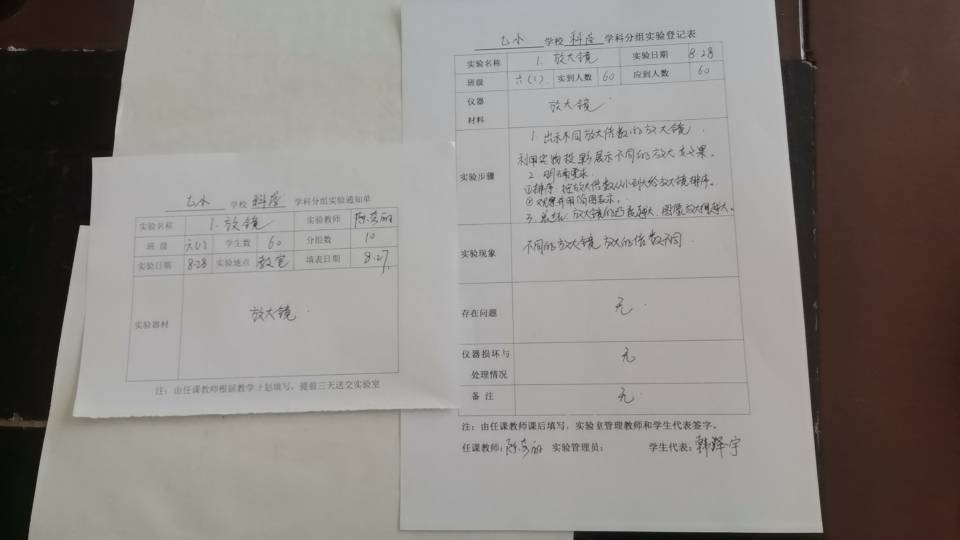 学校 科学 学科分组实验通知单
实验名称 1.放大镜 实验教师
班 级 六(1) 学生数 60 分组数 10
实验日期 8.28 实验地点 教室 填表日期 8.27
实验器材 放大镜
注：由任课教师根据教学计划填写，提前三天送交实验室
学校 科学 学科分组实验登记表
实验名称 1.放大镜 实验日期 8.28
班级 六(1) 实到人数 60 应到人数 60
仪器 放大镜
材料
实验步骤
1.出示不同放大倍数的放大镜.
利用实物投影展示不同的放大效果。
2.明确要求
①排序:按放大倍数从小到大给放大镜排序。
②观察并用简图表示。
3.总结:放大镜的凸度越大,图像放大得越大。
实验现象 不同的放大镜放大的倍数不同.
存在问题 无.
仪器损坏与 无
处理情况
备 注 无
注：由任课教师课后填写，实验室管理教师和学生代表签字。
任课教师: 实验管理员: 学生代表: 韩泽宇